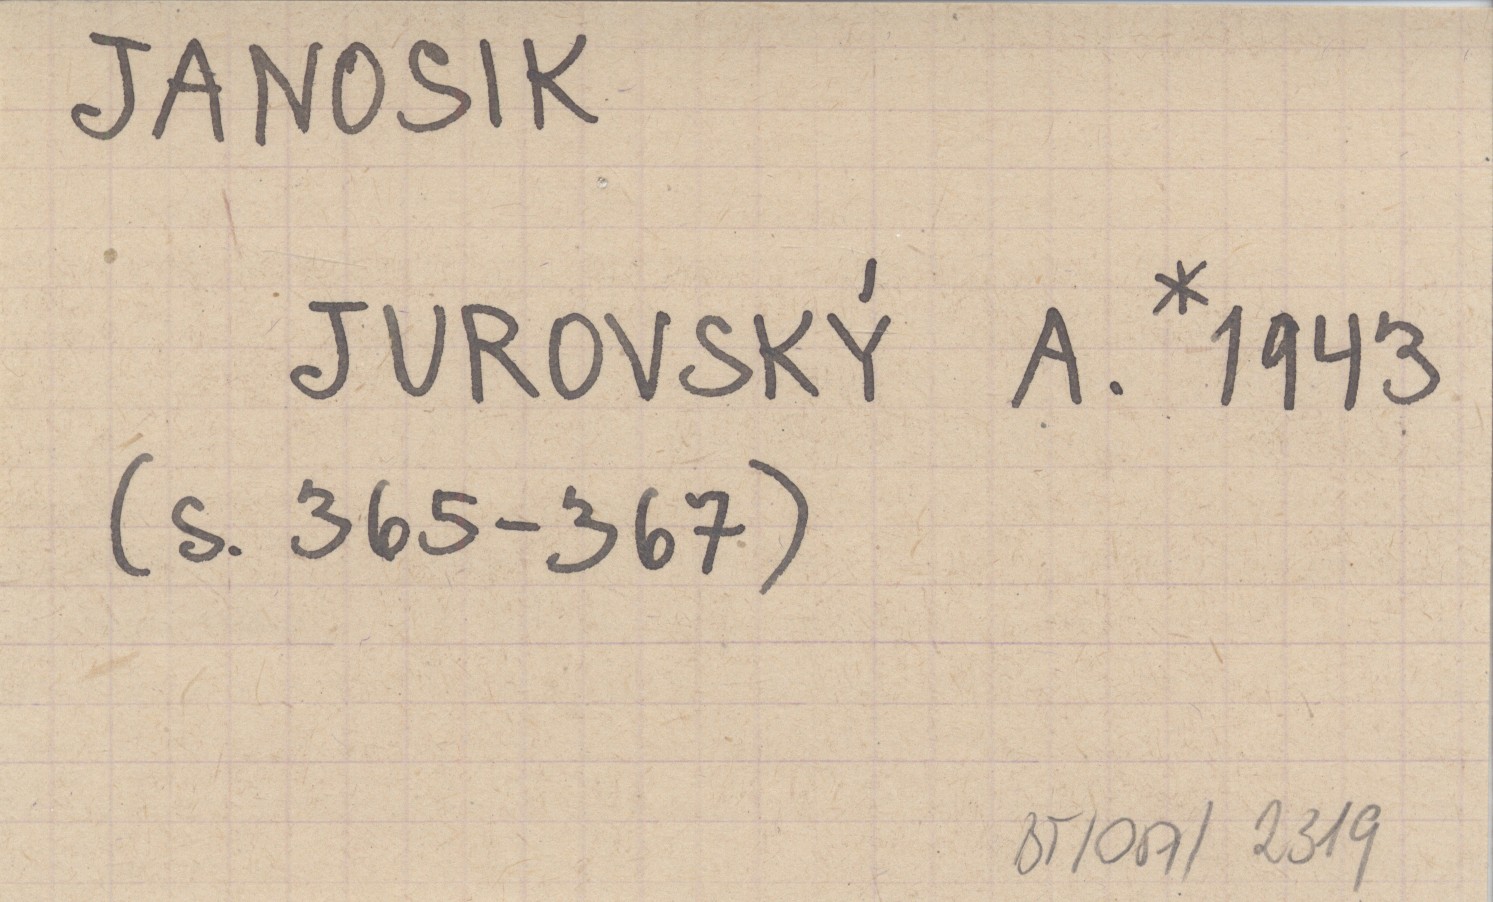 JANOSIK
JUROVSKÝ A. *1943
(s. 365-367)
2319